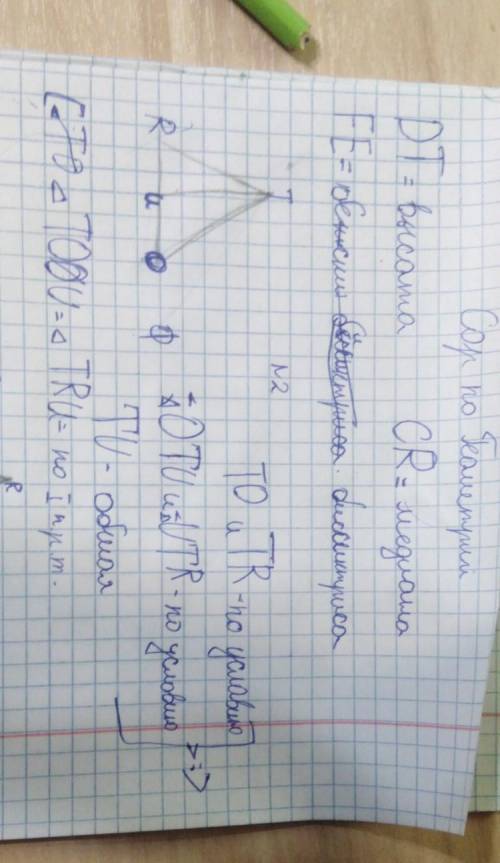 Сор по Геометрии
DT = высата CR = медиана
FE = биссиктриса
N2
T
R
U
O
TO и TR - по условию
∠OTU и = ∠UTR - по условию
TU - общая
=>
△ TOU = △ TRU = по I п.р.т.
R